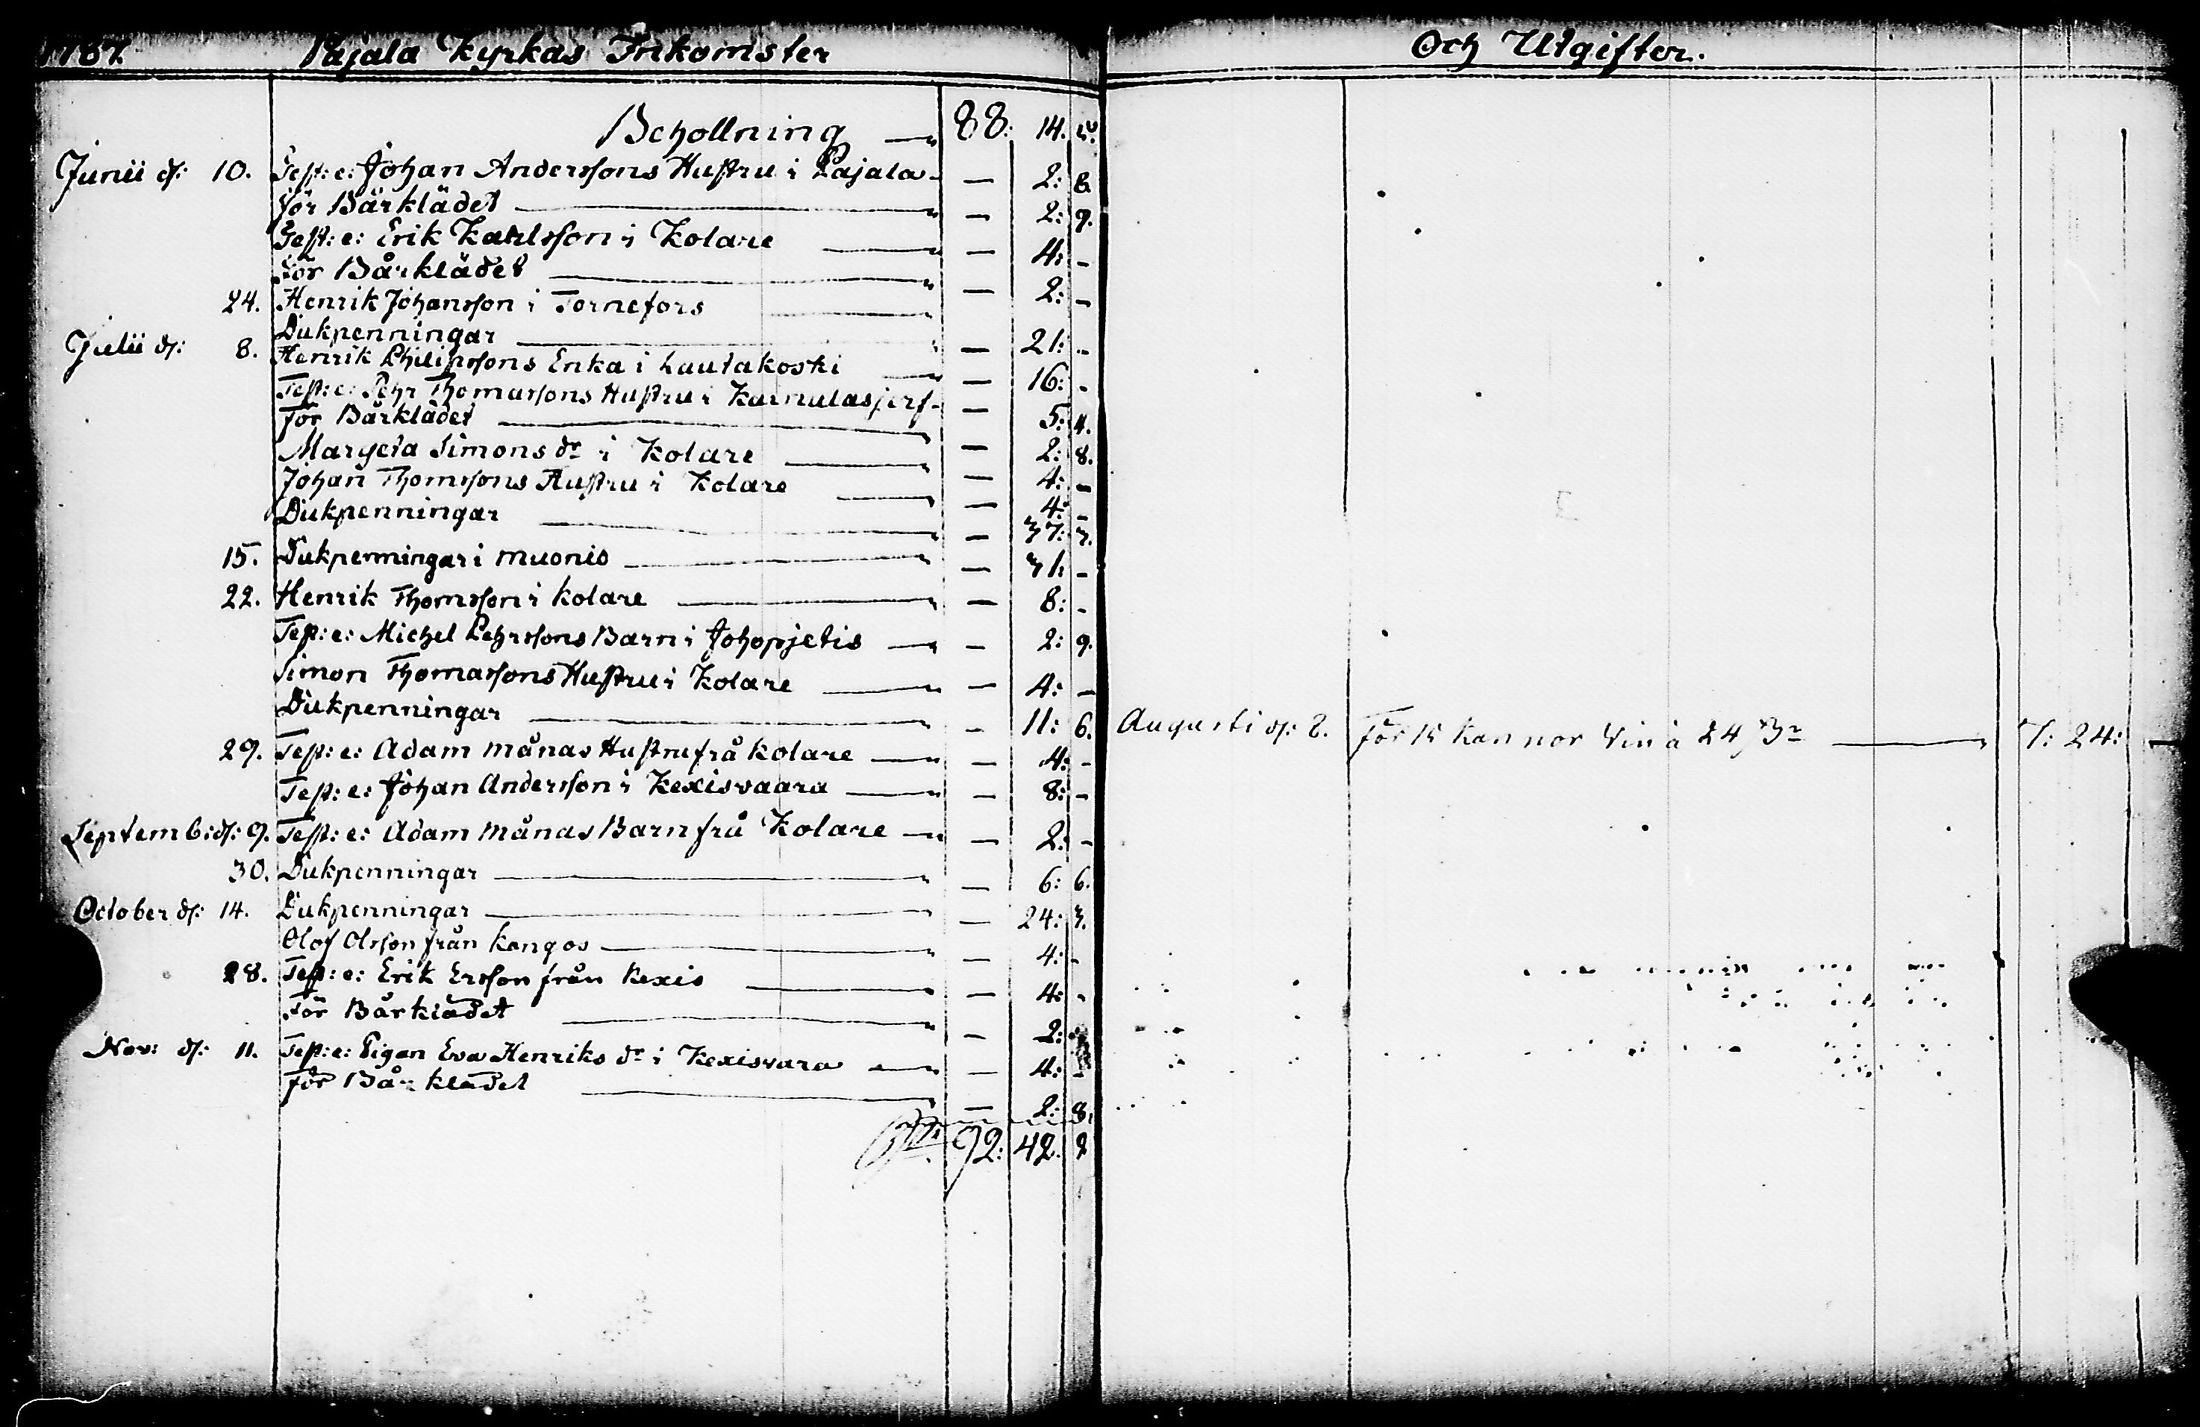 1787. Pajala Kyrkas Inkomster
Behollning 88: 14. 5.
Junii d: 10. Test: e: Johan Anderssons Hustru i Pajala — 2: 8.
För Bårklädet — 2: 9.
Test: e: Erik Karlsson i Kolare — 4: -
För Bårklädet — 2: -
24. Henrik Johansson i Tornefors
Dukpenningar — 21: -
Julii d: 8. Henrik Philipssons Enka i Lautakoski — 16: -
Test: e: Pehr Thomassons Hustru i Kainulasjerf — 5: 4.
För Bårklädet — 2: 8.
Margeta Simons dr i Kolare — 4: -
Johan Thomssons Hustru i Kolare — 4: -
Dukpenningar 37: 3.
15. Dukpenningar i Muonio — 31: -
22. Henrik Thomsson i Kolare — 8: -
Test: e: Michel Pehrssons Barn i Johopjetis — 2: 9.
Simon Thomassons Hustru i Kolare — 4: -
Dukpenningar — 11: 6.
29. Test: e: Adam Månas Hustru frå Kolare — 4: -
Test: e: Johan Andersson i Kexisvaara — 8: -
Septemb: d: 9. Test: e: Adam Månas Barn frå Kolare — 2: -
30. Dukpenningar — 6: 6.
October d: 14. Dukpenningar — 24: 3.
Olof Olsson från Kengos — 4: -
28. Test: e: Erik Ersson från Kexis — 4: -
För Bårklädet — 2:
Nov: d: 11. Test: e: Pigan Eva Henriks dr i Kexisvara — 4: -
för Bårklädet — 2: 8.
92: 42. 2
Och Utgifter.
Augusti d: 8. För 15 Kannor Vin à 24 7: 24: —